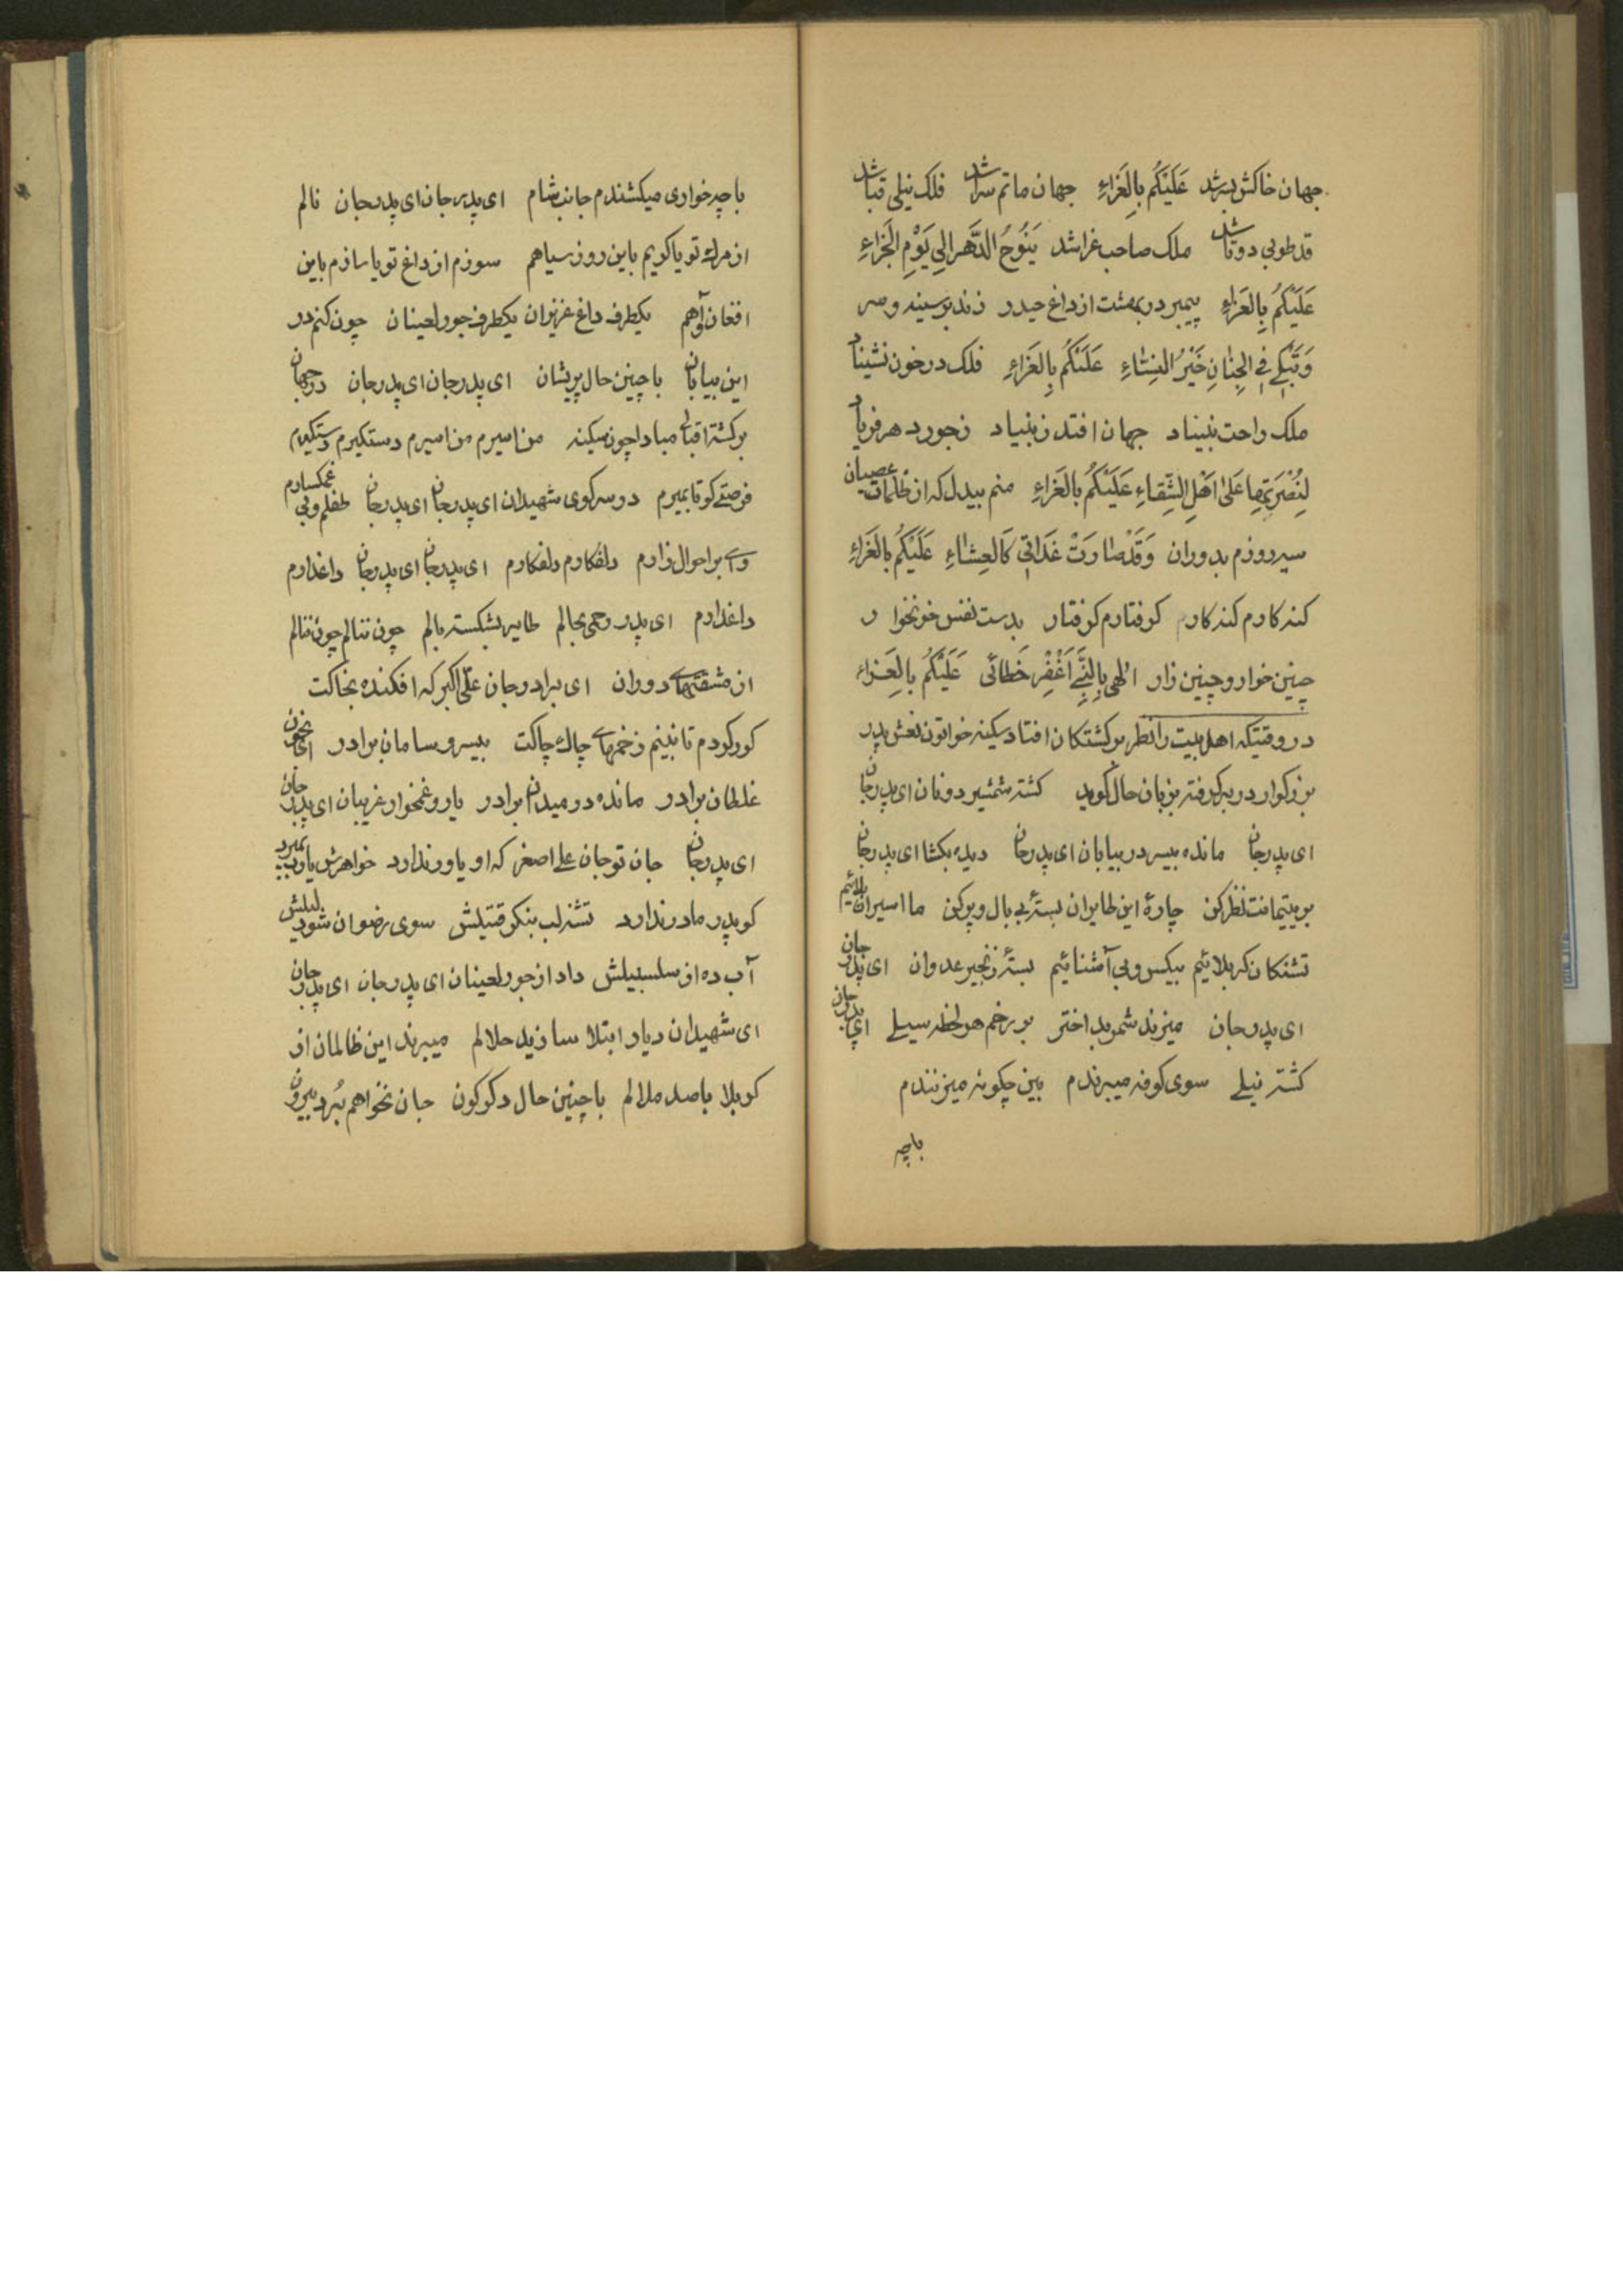 جهان خاکش بسر شد عَلَیْکُم بِالعَزاءِ جهان ماتم سرا شد فلک نیلی قبا شد
قد طوبی دوتا شد ملک صاحب عزا شد یَنُوحُ الدَّهر الی یَوْمِ الجَزاءِ
عَلَیْکُم بِالعَزاءِ پیمبر در بهشت از داغ حیدر زند بر سینه و سر
وَتَبْکی فِی الجِنانِ خَیْرُ النِساءِ عَلَیْکُم بِالعَزاءِ فلک در خون نشیناد
ملک راحت نبیناد جهان افتد ز بنیاد ز جور دهر فریاد
لِنُصْرَتِها عَلیٰ اَهْلِ الشِّقاءِ عَلَیْکُم بالعَزاءِ منم بیدل که از ظلمات عصیان
سیه روزم بدوران وَقَدْ صٰارَتْ غَدٰاتی کَالعِشٰاءِ عَلَیْکُم بالعَزاءِ
کنه کارم کنه کارم کرفتارم کرفتار بدست نفس خونخوار
چنین خوار و چنین زار الٰهی بِالنَّبِی اَغْفِرْ خَطائی عَلَیْکُم بِالعَزاء
در وقتیکه اهل بیت را نظر بر کشتکان افتاد سکینه خواتون نعش پدر
بزرکوار در بر کرفته بزبان حال کوید کشته شمشیر دونان ای پدرجان
ای پدرجان مانده بیسر در بیابان ای پدرجان دیده بکشا ای پدرجان
بر یتیمانت نظر کن چارهٔ این طایران بستهٔ بی بال و پر کن ما اسیران بلائیم
تشنکان کربلائیم بیکس و بی آشنائیم بستهٔ زنجیر عدوان ای پدر جان
ای پدر جان میزند شمر بد اختر بر رخم هر لحظه سیلی ای پدر جان
کشته نیلی سوی کوفه میبرندم بین چکونه میزنندم
باچه
باچه خواری میکشندم جانب شام ای پدر جان ای پدر جان نالم
از مرک تو یا کریم باین روز سیاهم سوزم از داغ تو یا سازم باین
افغان و آهم یکطرف داغ عزیزان یکطرف جور لعینان چون کنم در
این بیابان با چنین حال پریشان ای پدرجان ای پدرجان در جهان
بر کشته اقبالی مبادا چون سکینه من اسیرم من اسیرم دستکیرم دستکیرم
فرصتی کو تا بمیرم در سر کوی شهیدان ای پدرجان ای پدرجان طفلم و بی غمکسارم
وای بر احوال زارم دلفکارم دلفکارم ای پدرجان ای پدرجان داغدارم
داغدارم ای پدر رحمی بحالم طایر بشکسته بالم چون ننالم چون ننالم
از مشقتهای دوران ای برادر جان علی اکبر که افکنده بخاکت
کور کردم تا نبینم زخمهای چاک چاکت بیسر و سامان برادر ای بخون
غلطان برادر مانده در میدان برادر یار و غمخوار غریبان ای پدر جان
ای پدرجان جان تو جان علی اصغر که او یاور ندارد خواهرش
کو پدر مادر ندارد تشنه لب بنکر قتیلش سوی رضوان شو دلیلش
آب ده از سلسبیلش داد از جور لعینان ای پدر جان ای پدر جان
ای شهیدان دیار ابتلا سازید حلالم میبرند این ظالمان از
کربلا با صد ملالم با چنین حال دکرکون جان نخواهم بُرد بیرون